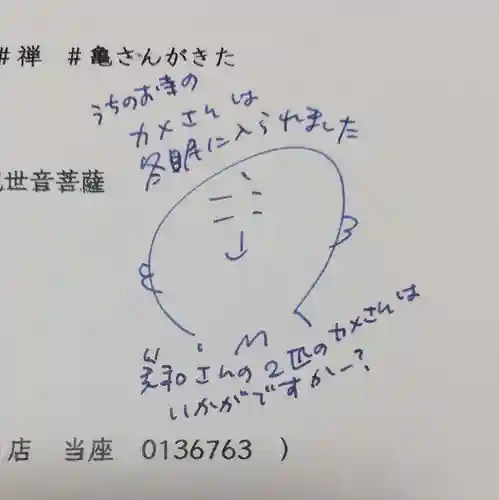 #禅 #亀さんがきた
うちのお寺の
カメさんは
冬眠に入られました
世音菩薩
和さんの2匹のカメさんは
いかがですかー?
店 当座 0136763 )